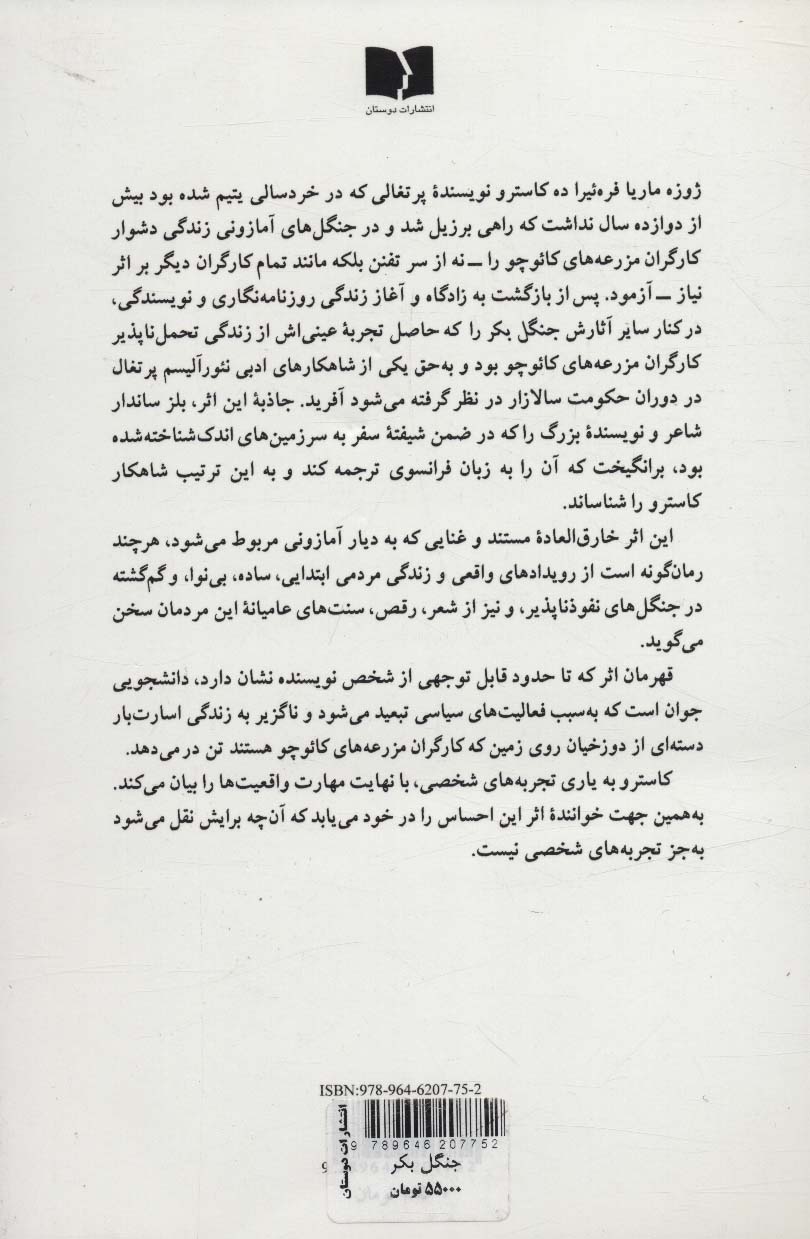 انتشارات دوستان
ژوزه ماریا فره‌ئیرا ده کاسترو نویسندهٔ پرتغالی که در خردسالی یتیم شده بود بیش
از دوازده سال نداشت که راهی برزیل شد و در جنگل‌های آمازونی زندگی دشوار
کارگران مزرعه‌های کائوچو را ــ نه از سر تفنن بلکه مانند تمام کارگران دیگر بر اثر
نیاز ــ آزمود. پس از بازگشت به زادگاه و آغاز زندگی روزنامه‌نگاری و نویسندگی،
در کنار سایر آثارش جنگل بکر را که حاصل تجربهٔ عینی‌اش از زندگی تحمل‌ناپذیر
کارگران مزرعه‌های کائوچو بود و به‌حق یکی از شاهکارهای ادبی نئورآلیسم پرتغال
در دوران حکومت سالازار در نظر گرفته می‌شود آفرید. جاذبهٔ این اثر، بلز ساندار
شاعر و نویسندهٔ بزرگ را که در ضمن شیفتهٔ سفر به سرزمین‌های اندک‌شناخته‌شده
بود، برانگیخت که آن را به زبان فرانسوی ترجمه کند و به این ترتیب شاهکار
کاسترو را شناساند.
این اثر خارق‌العادهٔ مستند و غنایی که به دیار آمازونی مربوط می‌شود، هرچند
رمان‌گونه است از رویدادهای واقعی و زندگی مردمی ابتدایی، ساده، بی‌نوا، و گم‌گشته
در جنگل‌های نفوذناپذیر، و نیز از شعر، رقص، سنت‌های عامیانهٔ این مردمان سخن
می‌گوید.
قهرمان اثر که تا حدود قابل توجهی از شخص نویسنده نشان دارد، دانشجویی
جوان است که به‌سبب فعالیت‌های سیاسی تبعید می‌شود و ناگزیر به زندگی اسارت‌بار
دسته‌ای از دوزخیان روی زمین که کارگران مزرعه‌های کائوچو هستند تن در می‌دهد.
کاسترو به یاری تجربه‌های شخصی، با نهایت مهارت واقعیت‌ها را بیان می‌کند.
به‌همین جهت خوانندهٔ اثر این احساس را در خود می‌یابد که آن‌چه برایش نقل می‌شود
به‌جز تجربه‌های شخصی نیست.
ISBN:978-964-6207-75-2
انتشارات دوستان
9 789646 207752
جنگل بکر
۵۵۰۰۰ تومان